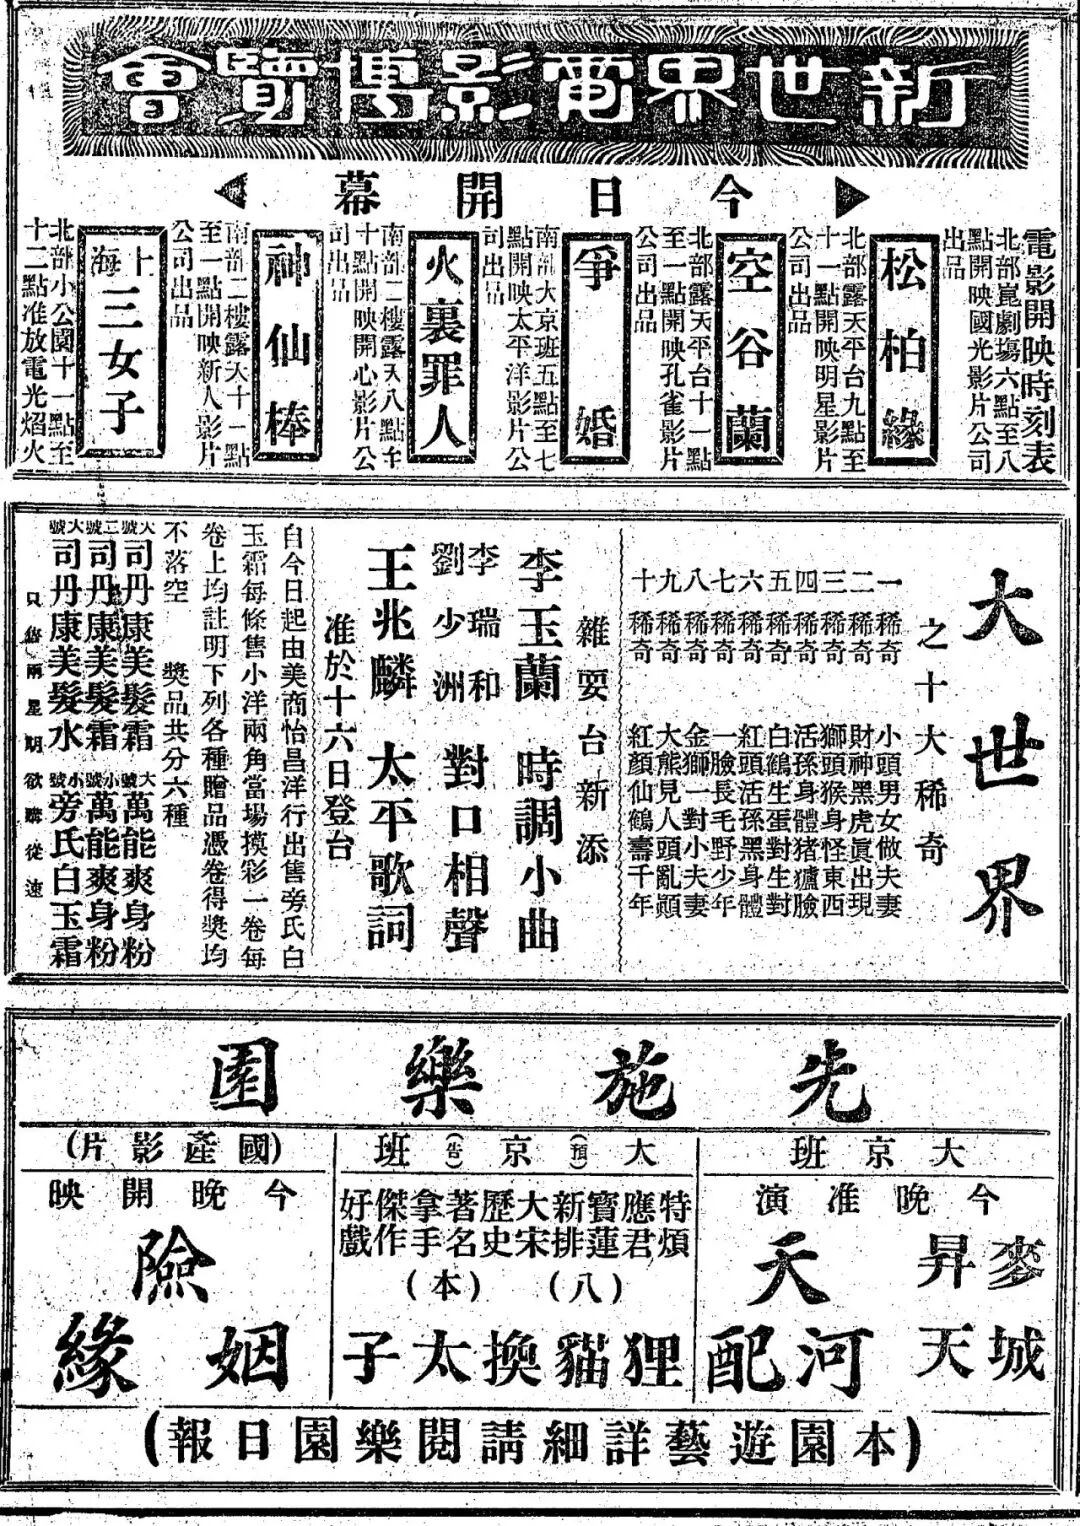 新世界電影博覽會
今日開幕
電影開映時刻表
北部崑劇塲六點至八
點開映國光影片公司
出品
松柏緣
北部露天平台九點至
十一點開映明星影片
公司出品
空谷蘭
北部露天平台十一點
至一點開映孔雀影片
公司出品
爭婚
南部大京班五點至七
點開映太平洋影片公
司出品
火裏罪人
南部二樓露天八點至
十點開映開心影片公
司出品
神仙棒
南部二樓露天十一點
至一點開映新人影片
公司出品
上海三女子
北部小公園十一點至
十二點准放電光焰火
大世界
之十大稀奇
一稀奇 小頭男女做夫妻
二稀奇 財神黑虎眞出現
三稀奇 獅頭猴身怪東西
四稀奇 活孫身體猪玀臉
五稀奇 白鶴生蛋對生對
六稀奇 紅頭活孫黑身體
七稀奇 一臉長毛野少年
八稀奇 金獅一對小夫妻
九稀奇 大熊見人頭亂顚
十稀奇 紅顏仙鶴壽千年
雜耍台新添
李玉蘭 時調小曲
李瑞和
劉少洲 對口相聲
王兆麟 太平歌詞
准於十六日登台
自今日起由美商怡昌洋行出售旁氏白
玉霜每條售小洋兩角當場摸彩一卷每
卷上均註明下列各種贈品憑卷得獎均
不落空 獎品共分六種
大號司丹康美髮霜 大號萬能爽身粉
二號司丹康美髮霜 小號萬能爽身粉
大號司丹康美髮水 小號旁氏白玉霜
只售兩星期欲購從速
先施樂園
大京班
今晚准演
麥城
昇天
天河配
大京班
(預告)
特煩
應君
寶蓮
新排
大宋
歷史
著名
拿手
傑作
好戲
(八本)
狸貓換太子
(國產影片)
今晚開映
險姻緣
(本園遊藝詳細請閱樂園日報)